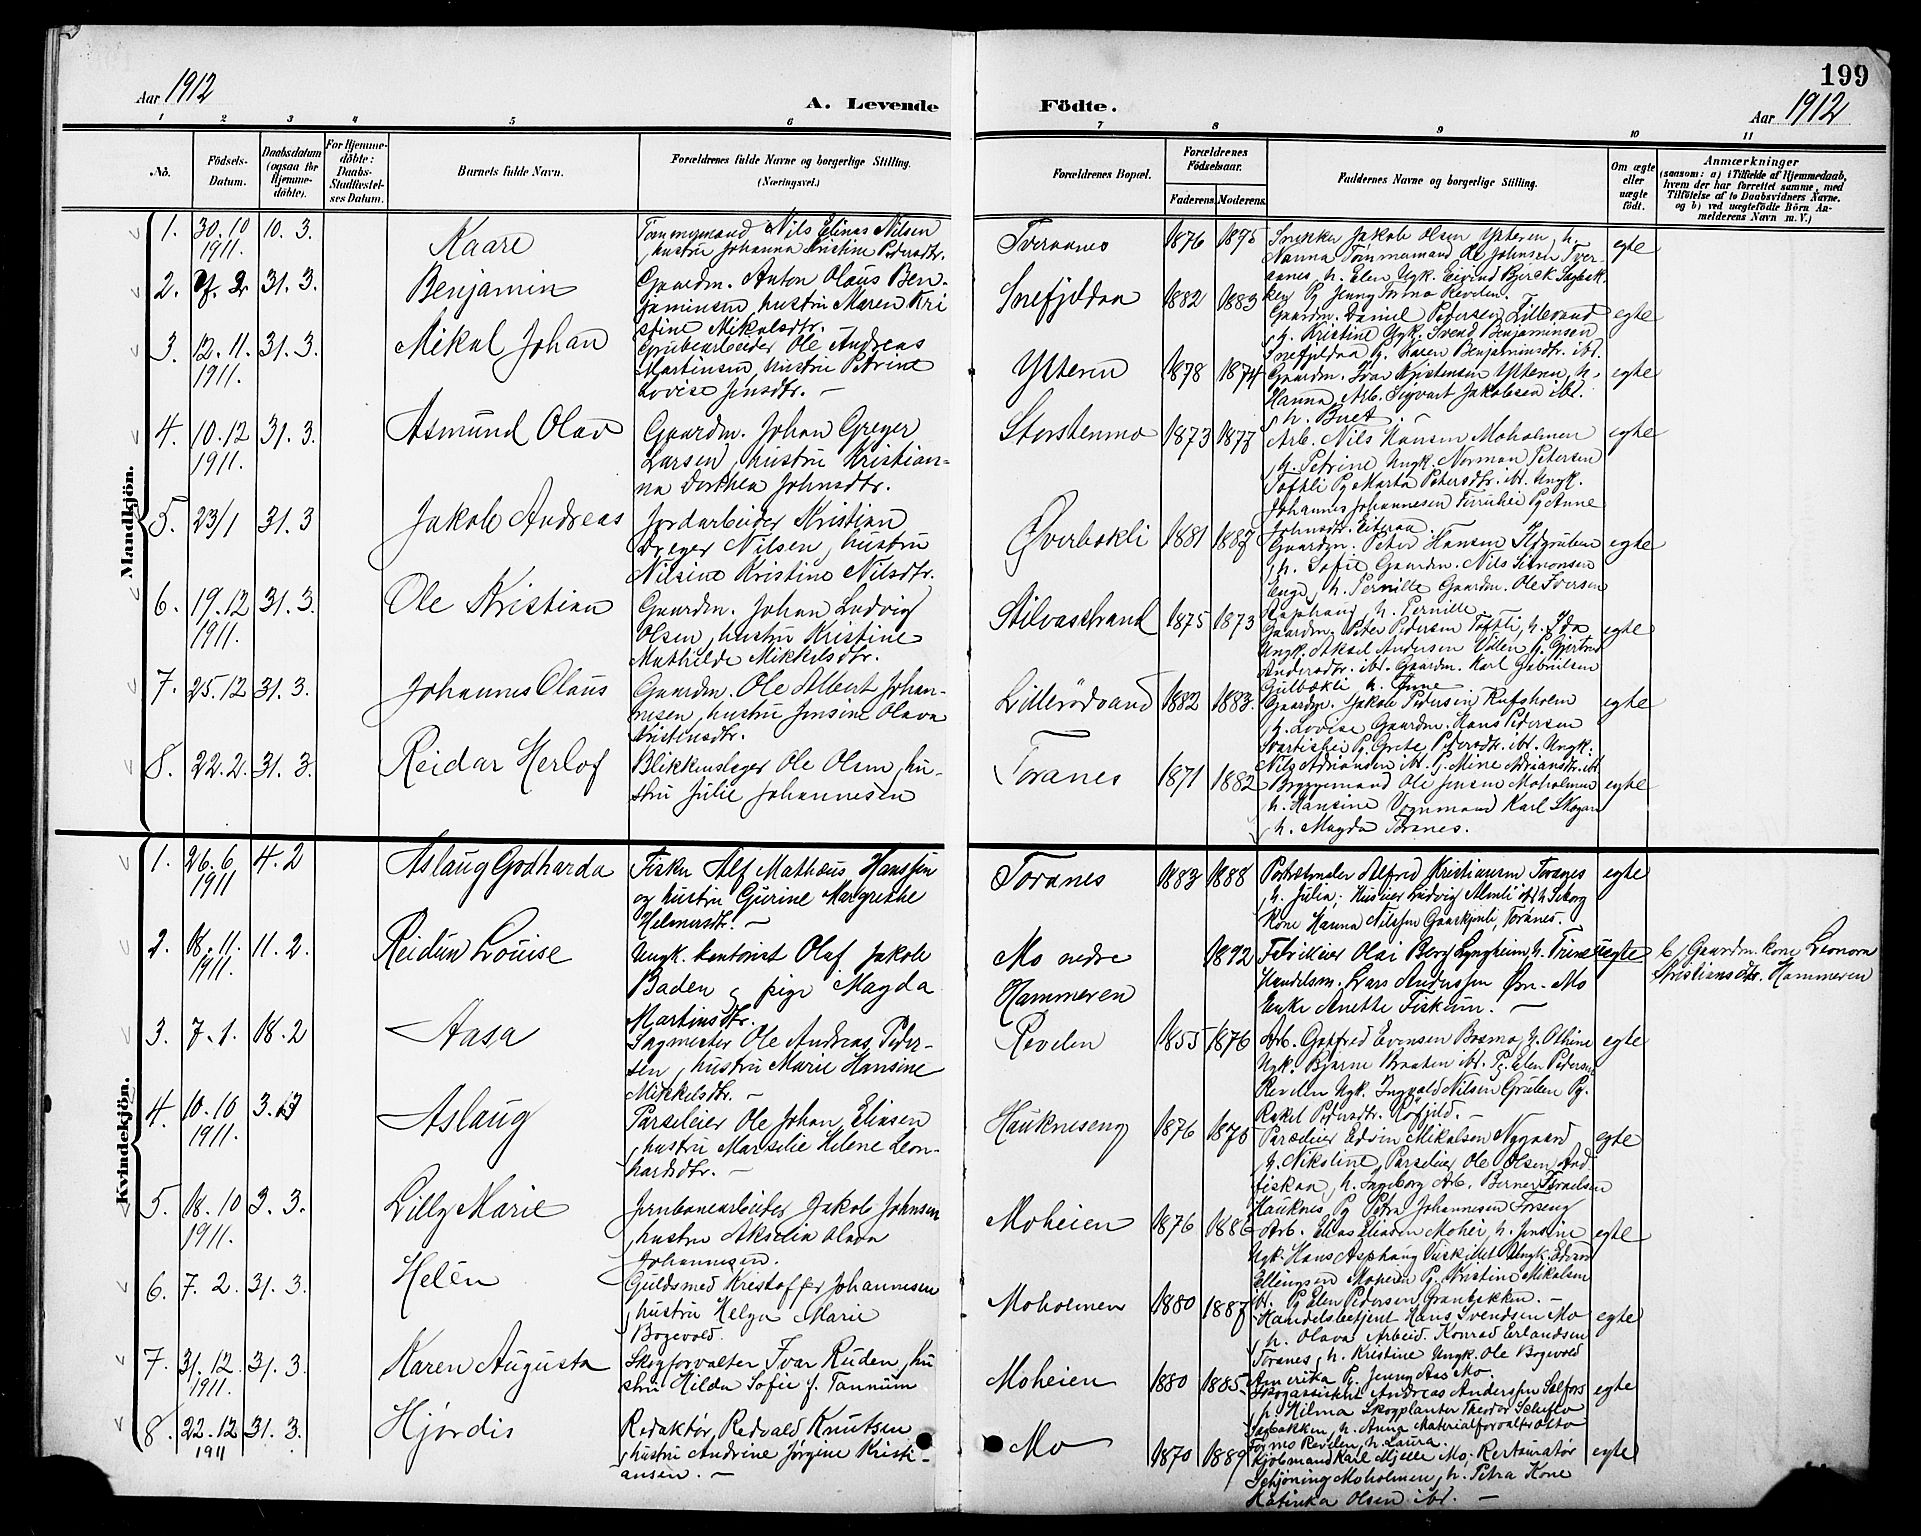 199
Aar 1912
A. Levende Födte.
Aar 1912
1 2 3 4 5 6 7 8 9 10 11
No.
Födsels-
Datum.
Daabsdatum
(ogsaa for
Hjemme-
döbte).
For Hjemme-
döbte:
Daabs-
Stadfæstel-
ses Datum.
Barnets fulde Navn.
Forældrenes fulde Navne og borgerlige Stilling.
(Næringsvei.)
Forældrenes Bopæl.
Forældrenes
Födselsaar.
Faderens. Moderens.
Faddernes Navne og borgerlige Stilling.
Om ægte
eller
uægte
födt.
Anmærkninger
(saasom: a) i Tilfælde af Hjemmedaab,
hvem der har forrettet samme, med
Tilföielse af to Daabsvidners Navne,
og b) ved uægtefödte Börn An-
melderens Navn m. V.)
Mandkjön.
1. 30.10 1911. 10.3. Kaare
Tommermand Nils Elinas Nilsen
, hustru Johanna Kristine Pedersdtr.
Tveraanes 1876 1875
Snekker Jakob Olsen Ytteren, h.
Nanna Tommermand Ole Johnsen Tver-
aanes, h. Elen Ungk. Eivind Bjerk Sagbak-
ken Pg Jenny Tormo Revelen.
egte
2. 31.3. Benjamin
Gaardm. Anton Olaus Ben-
jaminsen, hustru Maren Kri
stine Mikalsdtr.
Snefjeldaa 1882 1883
Gaardm. Daniel Pedersen Lillevand
, h. Kristine Ugk. Svend Benjaminsen
Snefjeldaa Pg. Karen Benjaminsdtr. ibt.
egte
3. 12.11. 1911. 31.3. Mikal Johan
Grubearbeider Ole Andreas
Martinsen, hustru Petrine
Lovise Jensdtr. —
Ytteren 1878 1874
Gaardm. Ivar Kristensen Ytteren, h.
Hanna, Arb. Sigvart Jakobsen ibt.
, h. Beret.
egte
4. 10.12 1911. 31.3. Asmund Olav
Gaardm. Johan Greger
Larsen, hustru Kristian-
na Dorthea Johnsdtr.
Storstenmo 1873 1877
Arb. Nils Hansen Moholmen
, h. Petrine Ungk. Norman Petersen
Toftli Pg Marta Petersdtr. ibt. Ungk.
Johannes Johannesen Furuhei Pg Anne
Johnsdtr. Eiteraa.
egte
5. 23/1 31.3 Jakob Andreas
Jordarbeider Kristian
Dreger Nilsen, hustru
Nilsine Kristine Nilsdtr.
Øverbakli 1881 1887
Gaardm. Peter Hansen Ildgruben
, h. Sofie Gaardm. Nils Simonsen
Enge, h. Pernille Gaardm. Ole Iversen
, h. Pernille
egte
6. 19.12 1911. 31.3. Ole Kristian
Gaardm. Johan Ludvig
Olsen, hustru Kristine
Mathilde Mikkelsdtr.
Stilvasstrand 1875 1873
Gaardm. Peter Pedersen Toftli, h. Ida
Ungk. Aksel Andersen Villen Pg. Gjertrud
Andersdtr. ibt. Gaardm. Karl Gabrielsen
Gulbakli h. Anne
egte
7. 25.12 31.3. Johannes Olaus
Gaardm. Ole Albert Johan-
nesen, hustru Jensine Olava
Kristensdtr.
Lillerödvand 1882 1883.
Gaardm. Jakob Pedersen Rufsholm
, h. Lovise Gaardm. Hans Pedersen
Svartishei Pg. Grete Pedersdtr. ibt. Ungk.
Nils Adriansen ibt. Pg. Mine Adriansdtr. ibt
egte
8. 22.2. 31.3. Reidar Herlof
Blikkenslager Ole Olsen, hu-
stru Julie Johannesen
Toranes 1871 1882
Bryggemand Ole Jensen Moholmen
h. Hansine Vognmand Karl Skogan
, h. Magda Toranes.
egte
Kvindekjön.
1. 26.6 1911 4.2 Aslaug Godharda
Fisker Alf Mathæus Hanssen
og hustru Gurine Margrethe
Helmersdtr. —
Toranes 1883 1888
Portrætmaler Alfred Kristiansen Toranes
, h. Julia; Huseier Ludvig Almli ibt h Solborg
Kone Hanna Nilssen Gaarkjenli, Toranes.
egte
2. 18.11. 1911. 11.2. Reidun Louise
Ungk. kontorist Olaf Jakob
Baden og pige Magda
Martinsdtr.
Mo nedre
Hammeren
1892
Fabrikeier Olai Berg Lyngheim, h. Trine
Handelsm. Lars Anderssen Øvr-Mo
Enke Anette Fiskum. —
uegte
b, Gaardm. kone Leonora
Kristiansdtr. Hammeren
3. 7.1. 18.2 Aasa
Sagmester Ole Andreas Peder-
sen, hustru Marie Hansine
Mikkelsdtr. —
Revelen 1855 1876
Arb. Gotfred Evensen Bosmo, h. Othine
Ugk. Bjarne Braaten ibt. Pg. Elen Pedersen
Revelen Ugk. Ingvald Nilsen Gruben Pg.
Rakel Pedersdtr. Röfjeld. —
egte
4. 10.10 1911. 3. Aslaug
Parseleier Ole Johan Eliasen
, hustru Marselie Helene Leon-
hardsdtr. —
Haukneseng 1876 1875
Parseleier Edvin Mikalsen Nygaard
, h. Nikoline, Parseleier Ole Olsen And-
fiskaa, h. Ingeborg Arb. Berner Tornelsen
Hauknes Pg Petra Johannesen Forseng
egte
5. 18.10 1911. 3.3. Lilly Marie
Jernbanearbeider Jakob Johnsen
, hustru Akselia Olava
Johannesen.
Moheien 1876 1886
Arb. Elias Eliasen Mohei, h. Jensine
Ugk. Hans Asphaug Ungk. Edvard
Ellingsen Moheien Pg. Kristine Mikalsen
ibt. Pg Elen Pedersen Granbakken. —
egte
6. 7.2. 31.3. Helén
Guldsmed Kristoffer Johannesen
, hustru Helga Marie
Bogevold.
Moholmen 1880 1887
Handelsbetjent Hans Svendsen Mo
, h. Olava Arbeid. Konrad Erlandsen
Toranes, h. Kristine Ungk. Ole Bogevold
Amerika Pg. Jenny Aas Mo.
egte
7. 31.12. 1911. 31.3. Karen Augusta
Skogforvalter Ivar Ruden, hu
stru Hilda Sofie f. Tannum
Moheien 1880 1885
Skogassistent Andreas Anderssen Selfors
, h. Hilma Skogplanter Theodor
Sagbakken, h. Anna Materialforvalter Otto
Tormo Revelen, h. Laura.
egte
8. 22.12 1911 31.3. Hjørdis
Redaktør, Redvald Knutsen
, hustru Andrine Jørgine Kristi-
ansen. —
Mo 1870 1889
Kjöbmand Karl Mjelle Mo, Restauratør
Schjöning Moholmen, h. Petra Kone
Katinka Olsen ibt. —
egte